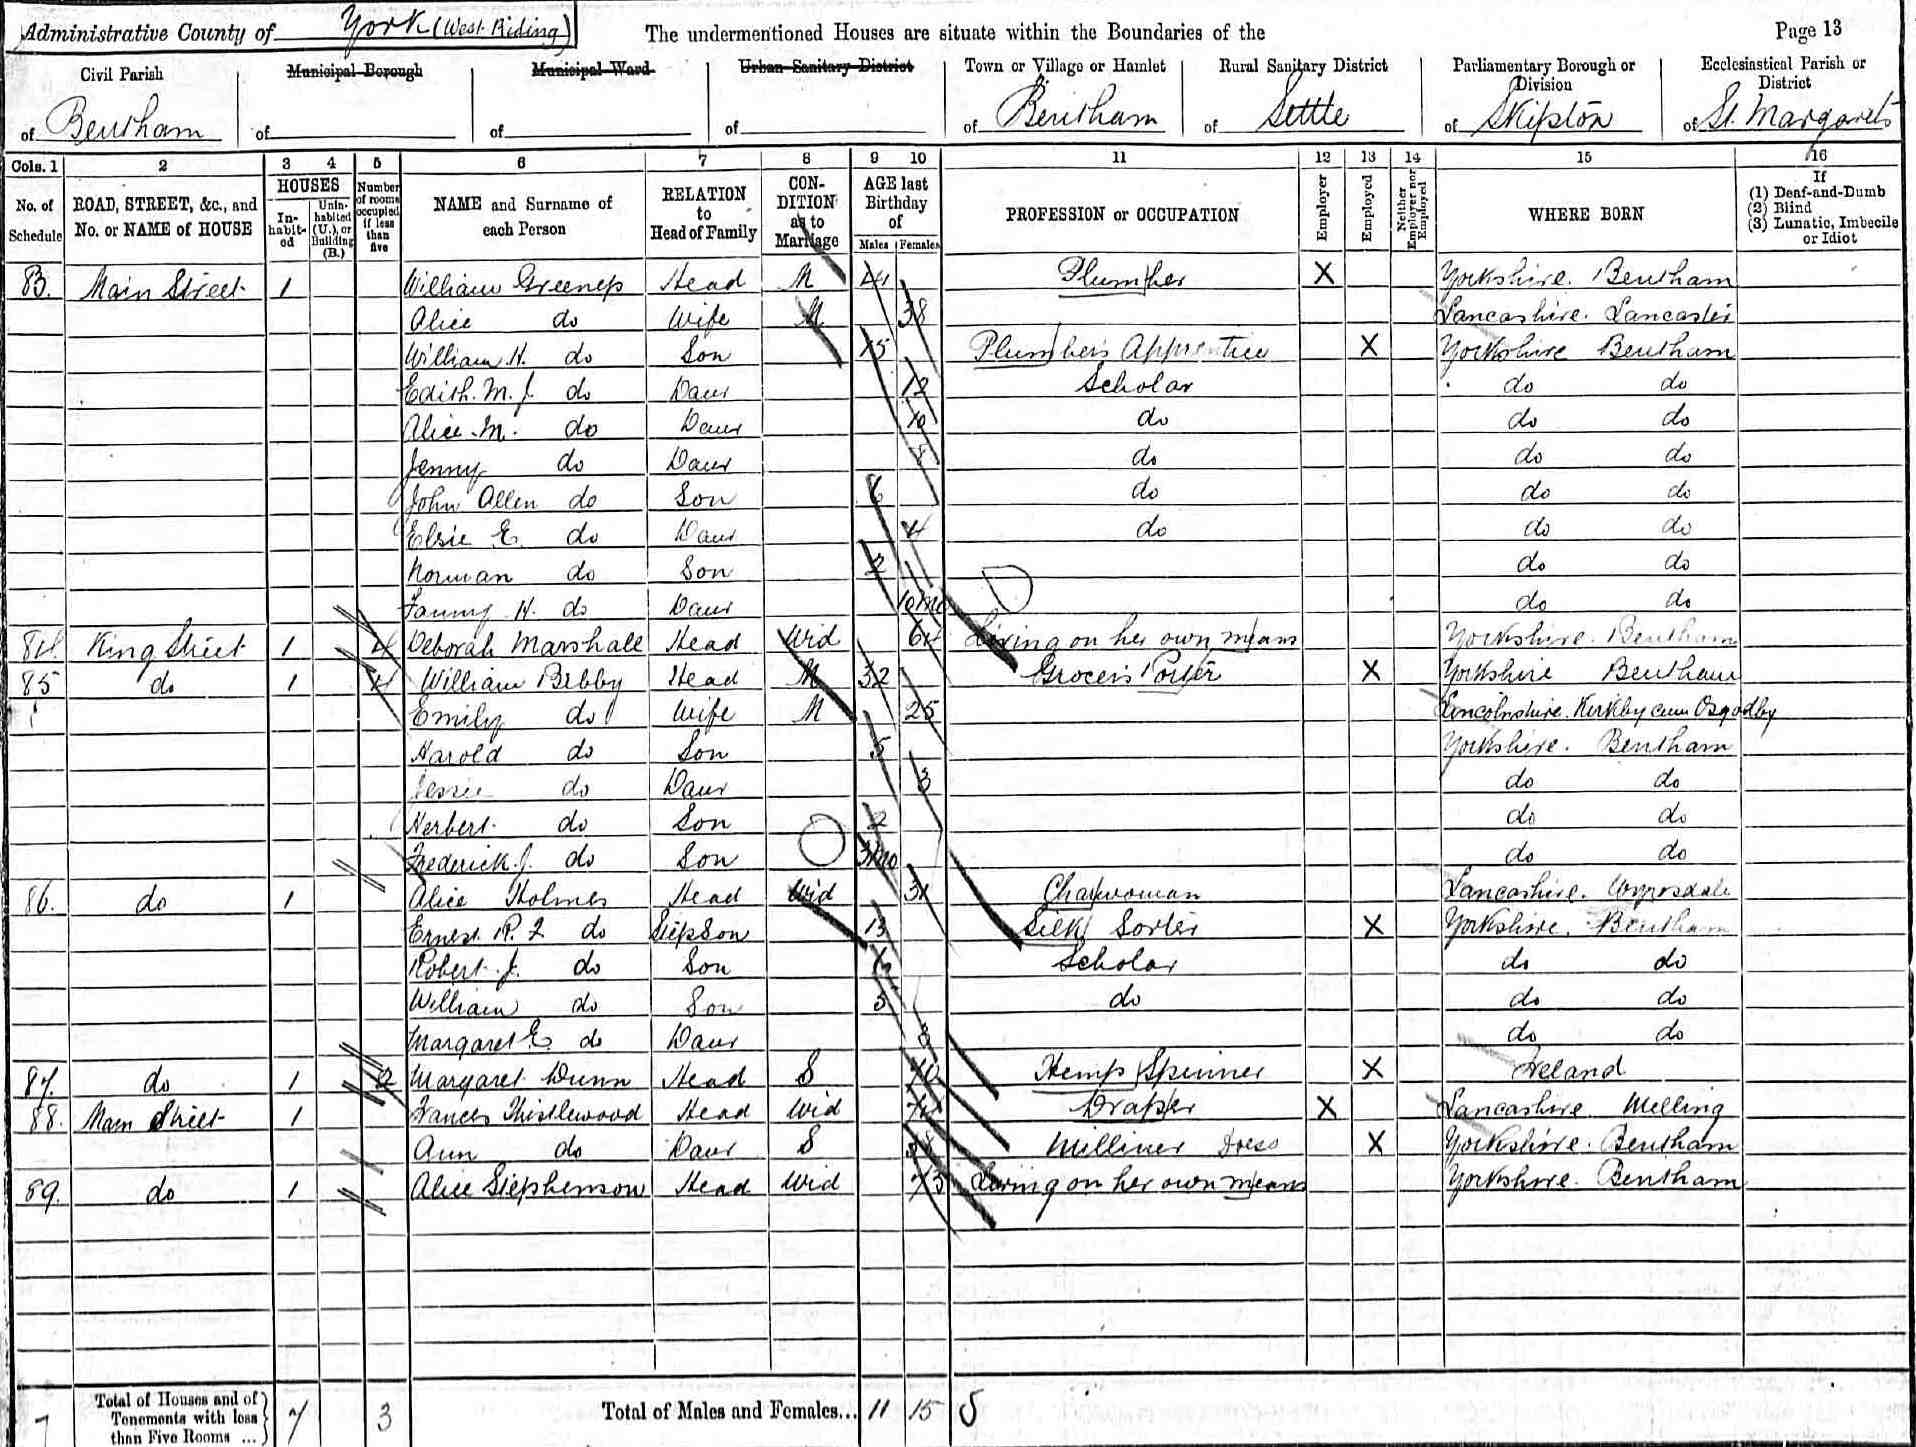 Administrative County of York (West Riding) The undermentioned Houses are situate within the Boundaries of the Page 13
Civil Parish Municipal Borough Municipal Ward Urban Sanitary District Town or Village or Hamlet Rural Sanitary District Parliamentary Borough or Division Ecclesiastical Parish or District
of Bentham of of of of Bentham of Settle of Skipton of St. Margarets
Cols. 1 2 3 4 5 6 7 8 9 10 11 12 13 14 15 16
No. of Schedule ROAD, STREET, &c., and No. or NAME of HOUSE HOUSES In-habit-ed Unin-habited (U.), or Building (B.) Number of rooms occupied if less than five NAME and Surname of each Person RELATION to Head of Family CON-DITION as to Marriage AGE last Birthday of Males Females PROFESSION or OCCUPATION Employer Employed Neither Employer nor Employed WHERE BORN If (1) Deaf-and-Dumb (2) Blind (3) Lunatic, Imbecile or Idiot
83. Main Street 1 William Greenep Head M 41 Plumber X Yorkshire. Bentham
Alice do Wife M 38 Lancashire. Lancaster
William H. do Son 15 Plumbers Apprentice X Yorkshire Bentham
Edith. M. J. do Daur 12 Scholar do do
Alice. M. do Daur 10 do do do
Jenny do Daur 8 do do do
John Allen do Son 6 do do do
Elsie E. do Daur 4 do do do
Norman do Son 2 do do
Fanny H. do Daur 10 mo do do
84. King Street 1 4 Deborah Marshall Head Wid 64 Living on her own means Yorkshire. Bentham
85 do 1 4 William Bibby Head M 32 Grocers Porter X Yorkshire Bentham
Emily do Wife M 25 Lincolnshire. Kirkby cum Osgodby
Harold do Son 5 Yorkshire. Bentham
Jessie do Daur 3 do do
Herbert. do Son 2 do do
Frederick. J. do Son 3 mo do do
86. do 1 Alice Holmes Head Wid Charwoman Lancashire. Wyresdale
Ernest R. do StepSon 13 Silk Sorter X Yorkshire. Bentham
Robert. J. do Son Scholar do do
William do Son 5 do do do
Margaret E. do Daur 3 do do
87. do 1 2 Margaret Dunn Head S 40 Hemp Spinner X Ireland
88. Main Street 1 Frances Thistlewood Head Wid Draper X Lancashire Melling
Ann do Daur S Milliner Dress X Yorkshire. Bentham
89. do 1 Alice Stephenson Head Wid 73 Living on her own means Yorkshire. Bentham
7 Total of Houses and of Tenements with less than Five Rooms ... 7 3 Total of Males and Females... 11 15